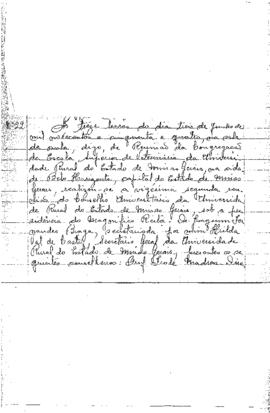 As treze horas do dia três de Junho de
mil novecentos e cinquenta e quatro, na sala
da aula, digo, de Reunião da Congregação
da Escola Superior de Veterinária da Univer-
sidade Rural do Estado de Minas Gerais, na cida
de de Belo Horizonte, capital do Estado de Minas
Gerais, realizou-se a vigesima segunda reu
nião do Conselho Universitário da Universida
de Rural do Estado de Minas Gerais, sob a pre
sidência do Magnifico Reitor Dr. Joaquim Fer
nandes Braga, secretariada por mim
de Castro, Secretário Geral da Universidade
Rural do Estado de Minas Gerais, presentes os se
guintes conselheiros: Prof.